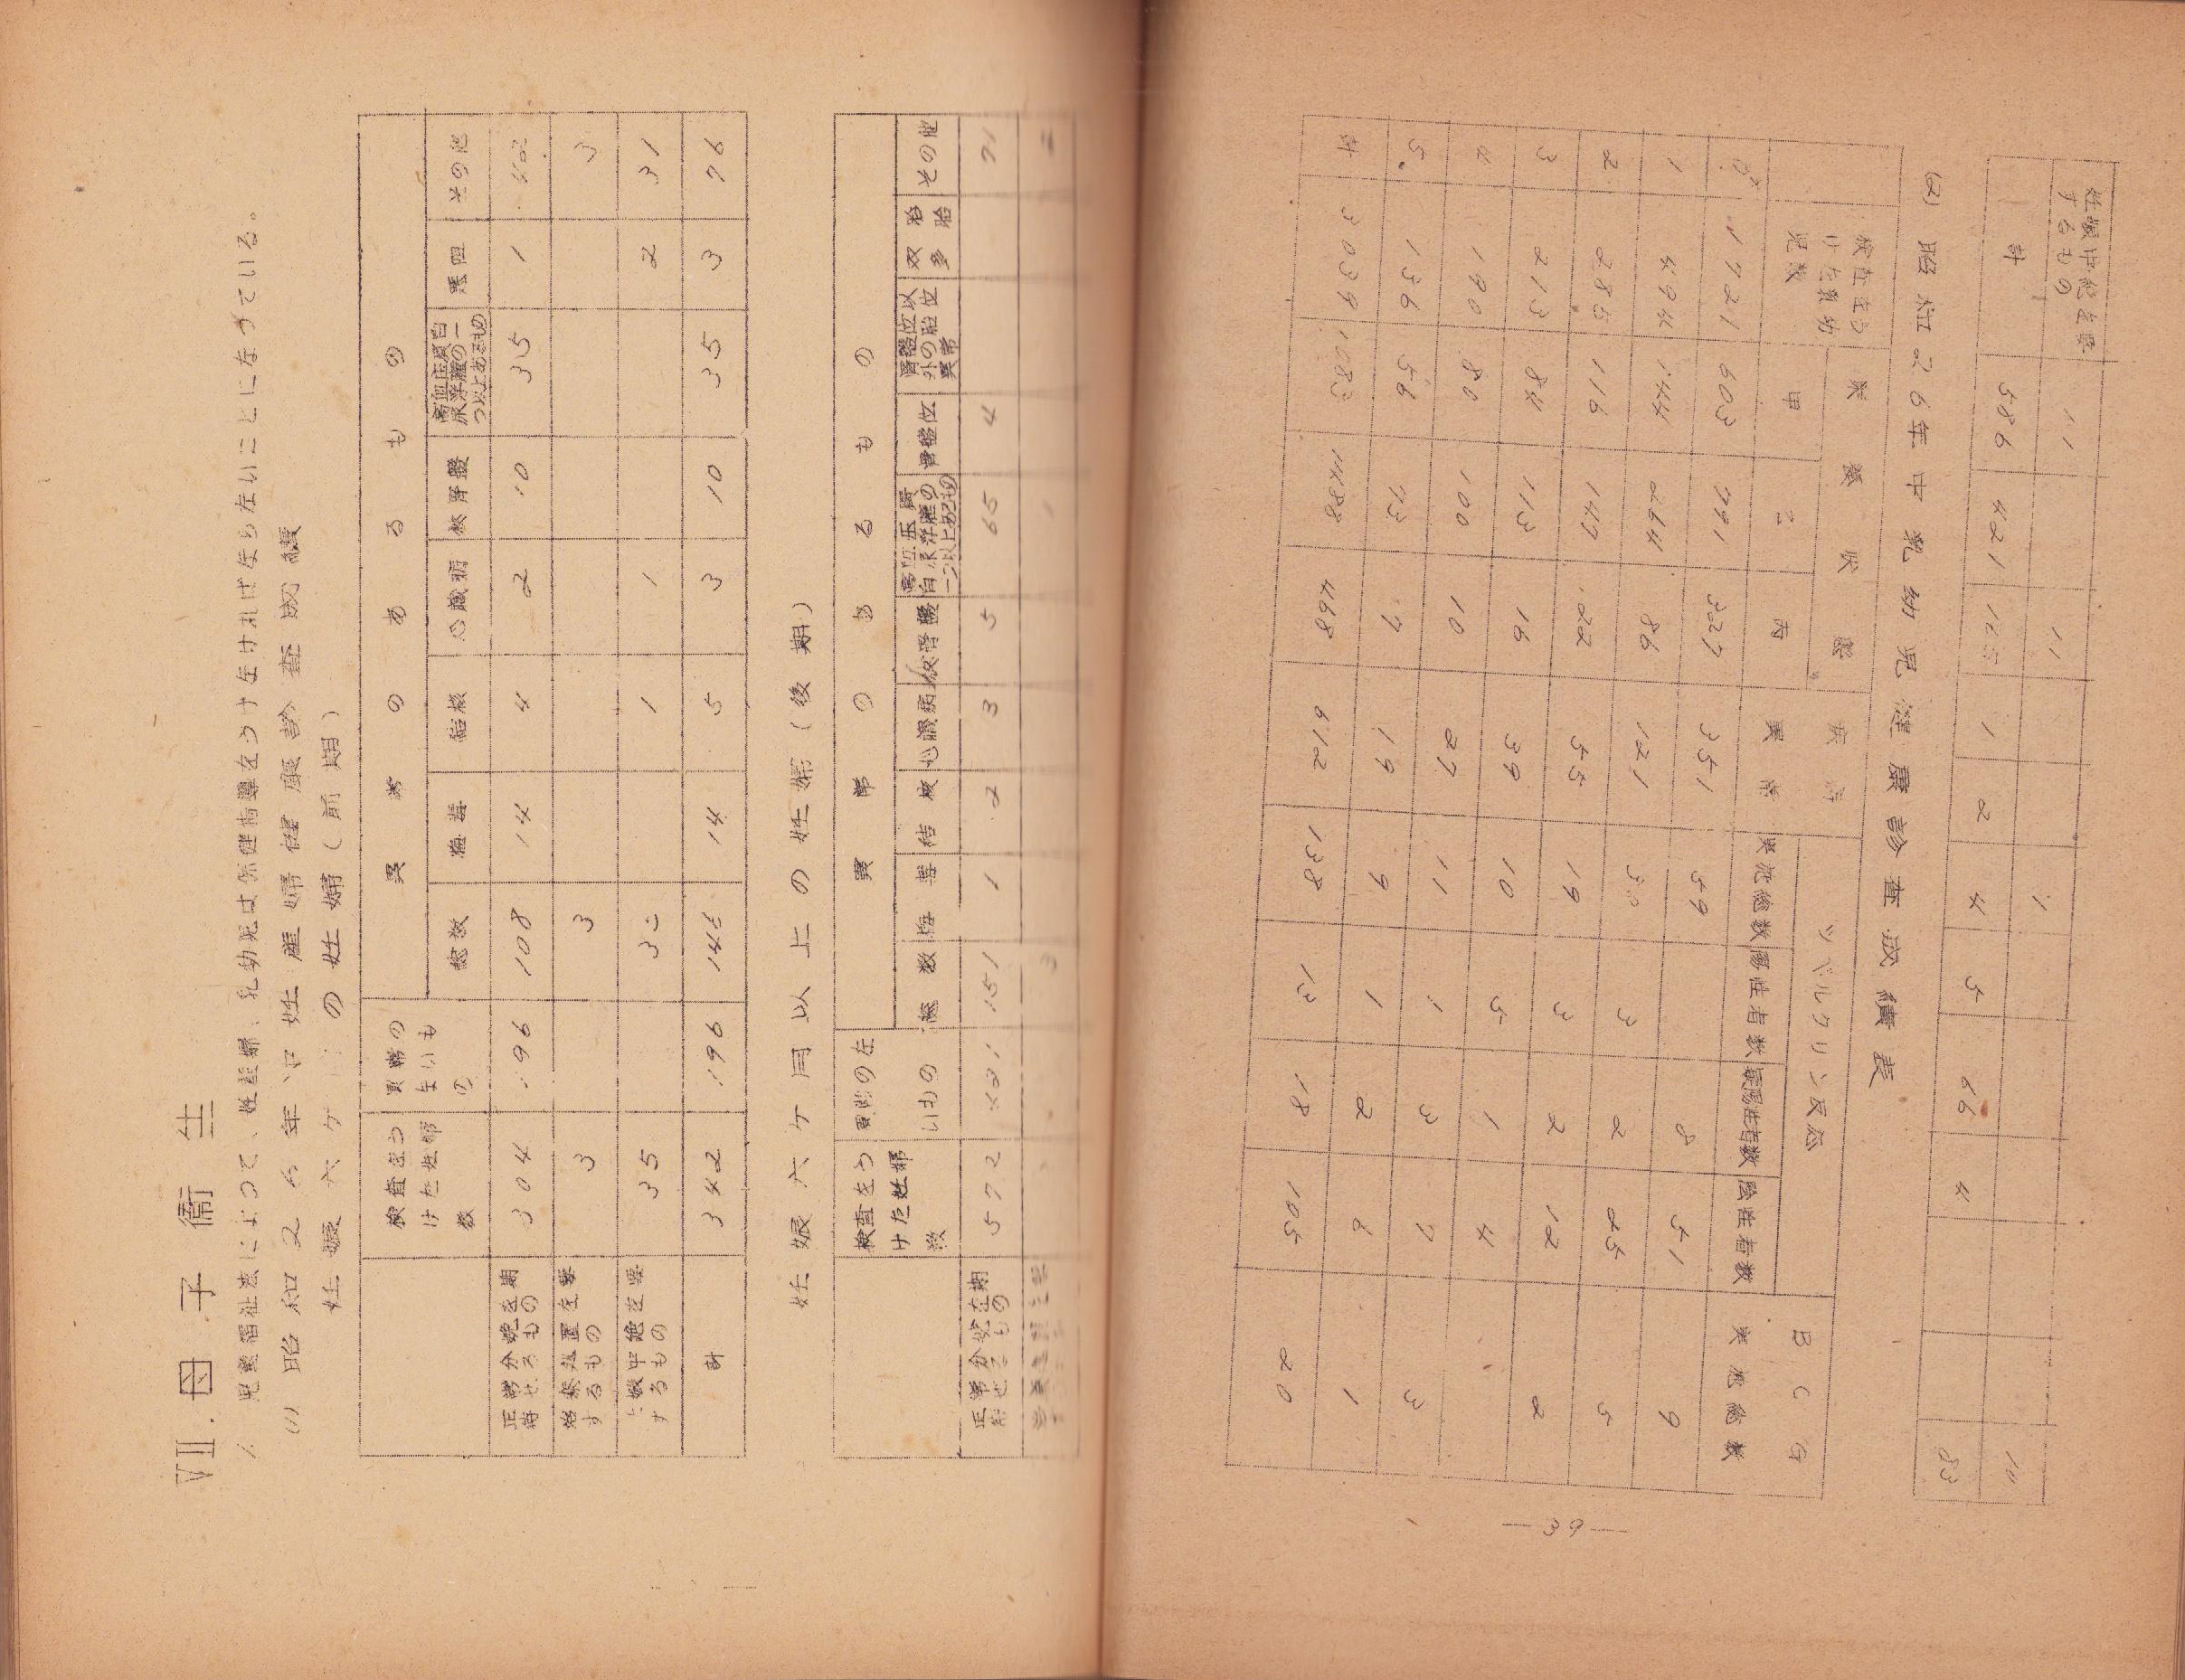 VII. 母子衛生
1. 児童福祉法によって、妊産婦、乳幼児は保健指導をうけなければならないことになっている。
(1) 昭和26年中妊産婦健康診査成績
妊娠六ヶ月の妊婦(前期)
検査をうけた妊婦数 異常のないもの 異常のあるもの
総数 梅毒 結核 心臓病 狭骨盤 高血圧蛋白尿浮腫の一つ以上あるもの 悪阻 その他
正常分娩を期待せるもの 304 196 108 14 4 2 10 35 1
治療処置を要するもの 3 3 3
妊娠中絶を要するもの 35 1 1 2 31
計 342 196 14 5 3 10 35 3 76
妊娠六ヶ月以上の妊婦(後期)
検査をうけた妊婦数 異常のないもの 異常のあるもの
総数 梅毒 結核 心臓病 狭骨盤 高血圧蛋白尿浮腫の一つ以上あるもの 骨盤位 骨盤位以外の胎位異常 双胎多胎 その他
正常分娩を期待せるもの 572 421 151 1 2 3 5 65 4 71
妊娠中絶を要するもの 11 11 10
計 586 421 1 2 4 5 66 4 83
(2) 昭和26年中乳幼児健康診査成績表
検査をうけた乳幼児数 栄養状態 疾病異常 ツベルクリン反応 BCG
甲 乙 丙 実施総数 陽性者数 疑陽性者数 陰性者数 実施総数
0才 1721 603 791 327 351 59 8 51 9
1 494 144 264 86 121 30 3 2 25 5
2 285 116 147 22 55 19 3 2 12 2
3 213 84 113 16 39 10 5 1 4
4 190 80 100 10 27 11 1 3 7 3
5 136 56 73 7 19 9 1 2 6 1
計 3039 1083 1488 468 612 138 13 18 105 20
—39—